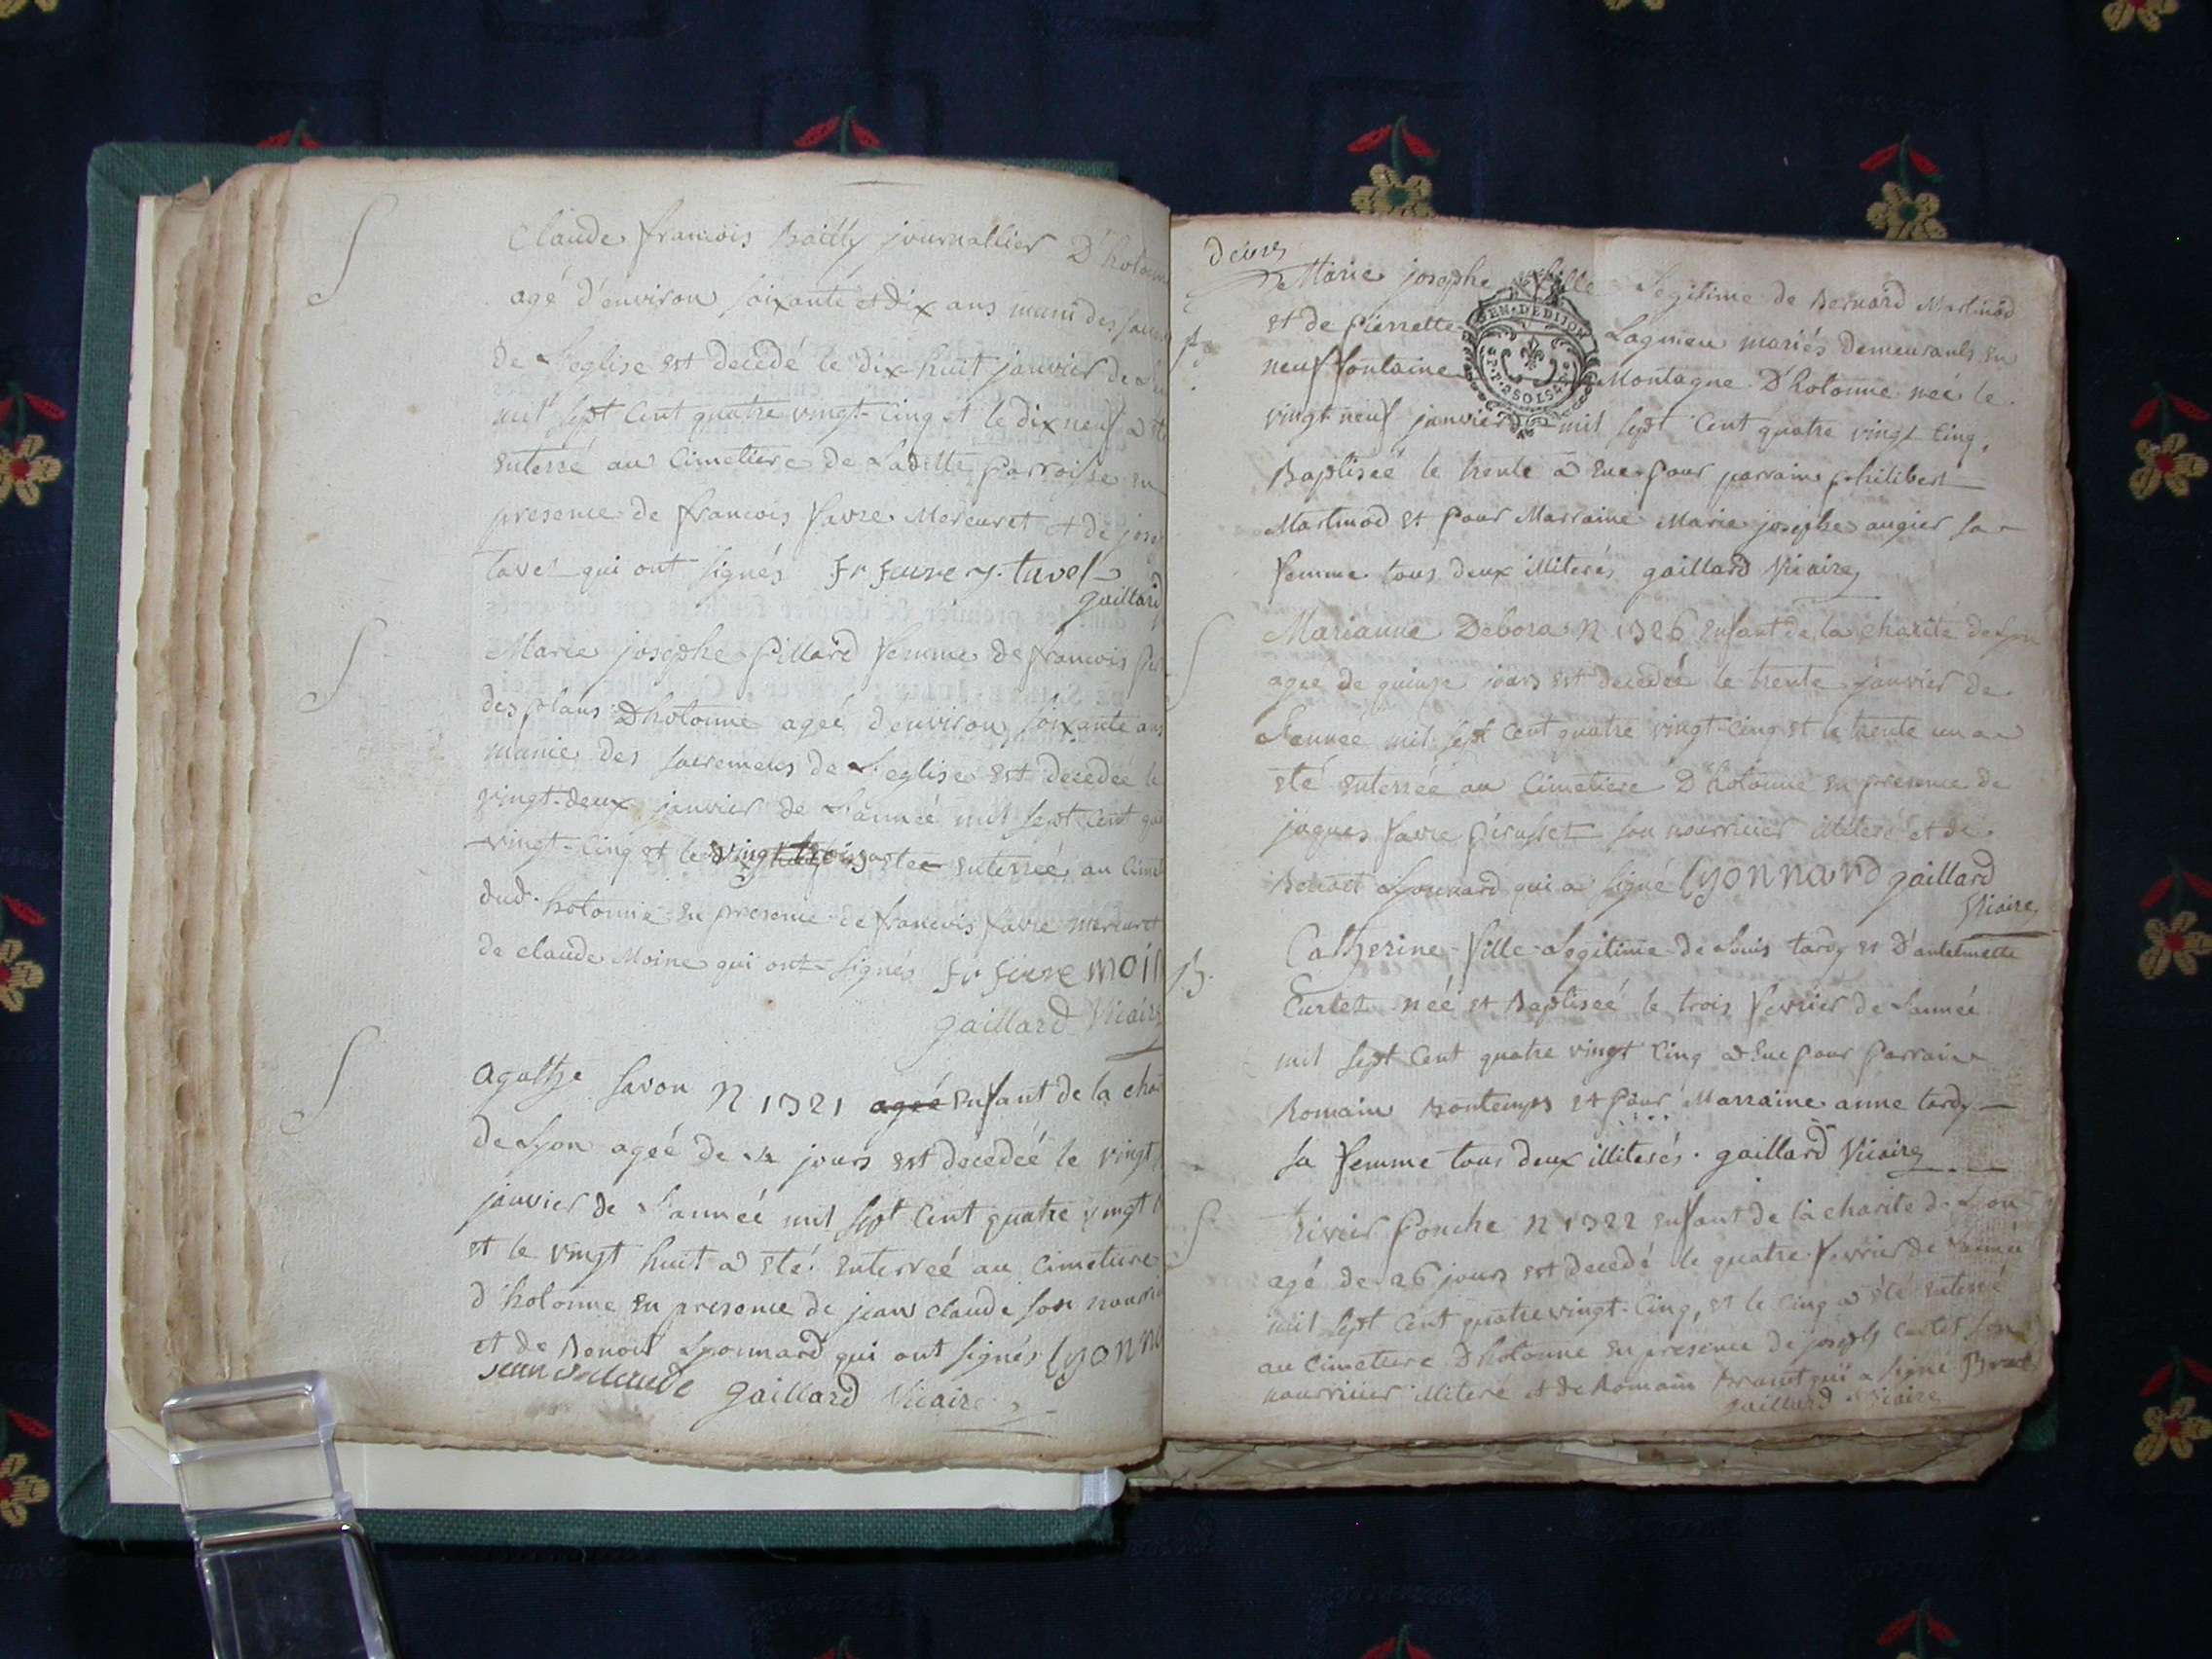 Claude francois Bailly journallier D'hotonne
agé d'environ soixante et dix ans muni des
de L'eglise est decedé le dix-huit janvier de
mil sept Cent quatre vingt-Cinq et le dix neuf a été
enterré au Cimetiere de Laditte Parroisse en
presence de francois favre Mercuret et de
tavel qui ont signés fr favre j. tavel
gaillard
Marie josephe Pillard femme de francois
des plans D'hotonne ageé d'environ soixante ans
munie des sacremens de L'eglise est decedeé le
vingt-deux janvier de L'anneé mil sept Cent
vingt-Cinq et le vingt trois a été enterreé au
dud. hotonne en presence de francois favre mercuret
de claude Moine qui ont signés fr favre
gaillard Vicaire
agathe savon N 1321 ageé enfant de la
de Lyon ageé de jours est decedeé le vingt
janvier de L'anneé mil sept Cent quatre vingt
et le vingt huit a été enterreé au Cimetiere
d'hotonne en presence de jean claude son
et de Benoit Lyonnard qui ont signés
jean claude gaillard Vicaire
deux
Marie josephe fille Legitime de Bernard Martinod
GEN. DE DIJON
et de Pierrette Lagnieu mariés demeurants en
neuf fontaine Montagne D'hotonne neé le
vingt neuf janvier mil sept Cent quatre vingt Cinq,
Baptiseé le trente a Eue pour parrain philibert
Martinod et Pour Marraine Marie josephe augier sa
femme tous deux illiterés gaillard Vicaire
Marianne Debora N 1326 enfant de la charité de Lyon
agee de quinze jours est decedeé le trente janvier de
L'anneé mil sept Cent quatre vingt-Cinq et le trente un a
été enterreé au Cimetiere D'hotonne en presence de
jaques favre son nourricier illiteré et de
Benoit Lyonnard qui a signé Lyonnard gaillard
Vicaire
B.
Catherine fille Legitime de Louis tardy et D'antelmette
Curlet neé et Baptiseé le trois fevrier de L'anneé
mil sept Cent quatre vingt Cinq a Eue Pour Parrain
Romain Bontemps et Pour Marraine anne tardy
sa femme tous deux illiterés. gaillard Vicaire
Ponche N 1322 enfant de la charité de Lyon
agé de 26 jours est decedé le quatre fevrier de L'anneé
mil sept Cent quatre vingt-Cinq, et le Cinq a été enterré
au Cimetiere D'hotonne en presence de joseph son
nourricier illiteré et de Romain qui a signé
gaillard Vicaire